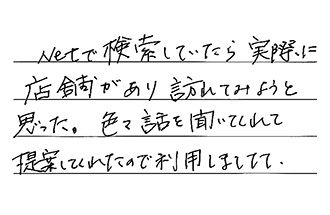 Netで検索していたら実際に
店舗があり訪れてみようと
思った。色々話を聞いてくれて
提案してくれたので利用しましたて.